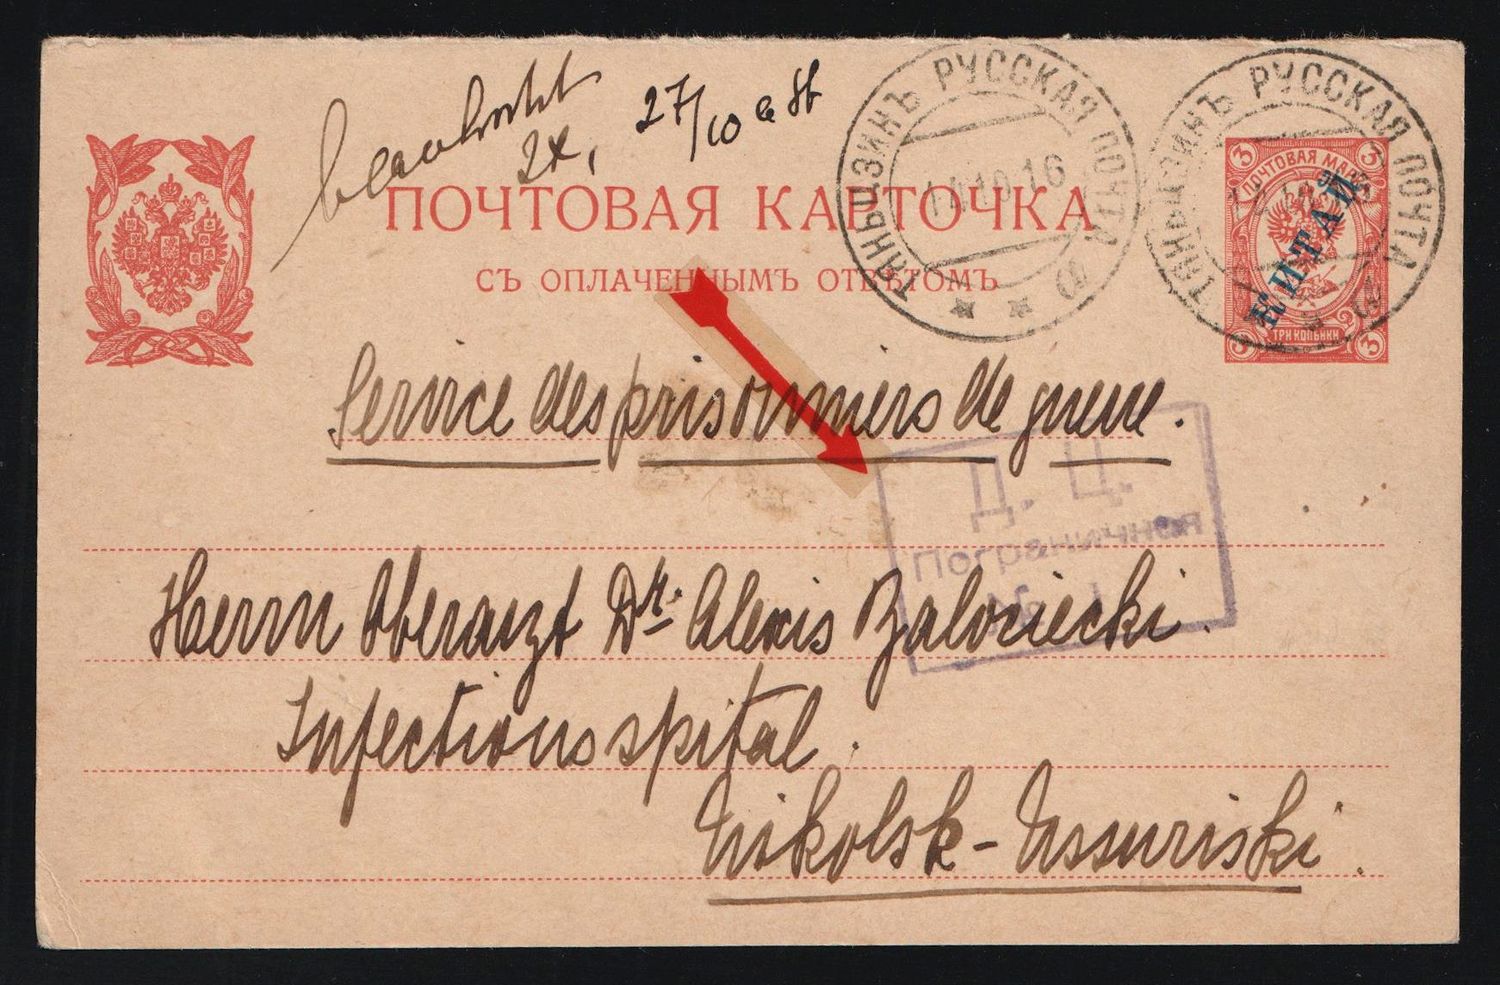 beantwortet
24, 27/10
ПОЧТОВАЯ КАРТОЧКА
СЪ ОПЛАЧЕННЫМЪ ОТВѢТОМЪ
ТЯНЬЦЗИНЪ РУССКАЯ ПОЧТА
10.16
ТЯНЬЦЗИНЪ РУССКАЯ ПОЧТА
3 3
ПОЧТОВАЯ МАРКА
КИТАЙ
ТРИ КОПѢЙКИ
3 3
Service des prisonniers de guerre.
Д. Ц.
Пограничная
№ 1
Herrn Oberarzt Dr. Alexis Zalociecki.
Infectionsspital.
Nikolsk-Ussuriski.